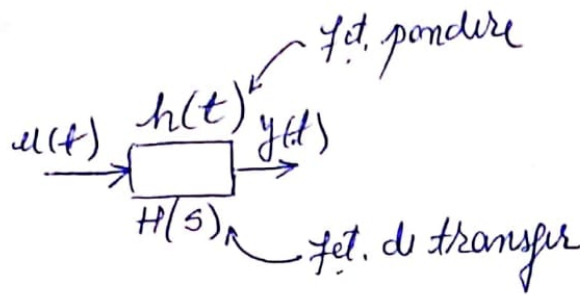 fct. pondere
h(t)
u(t)
y(t)
H(s)
fct. de transfer